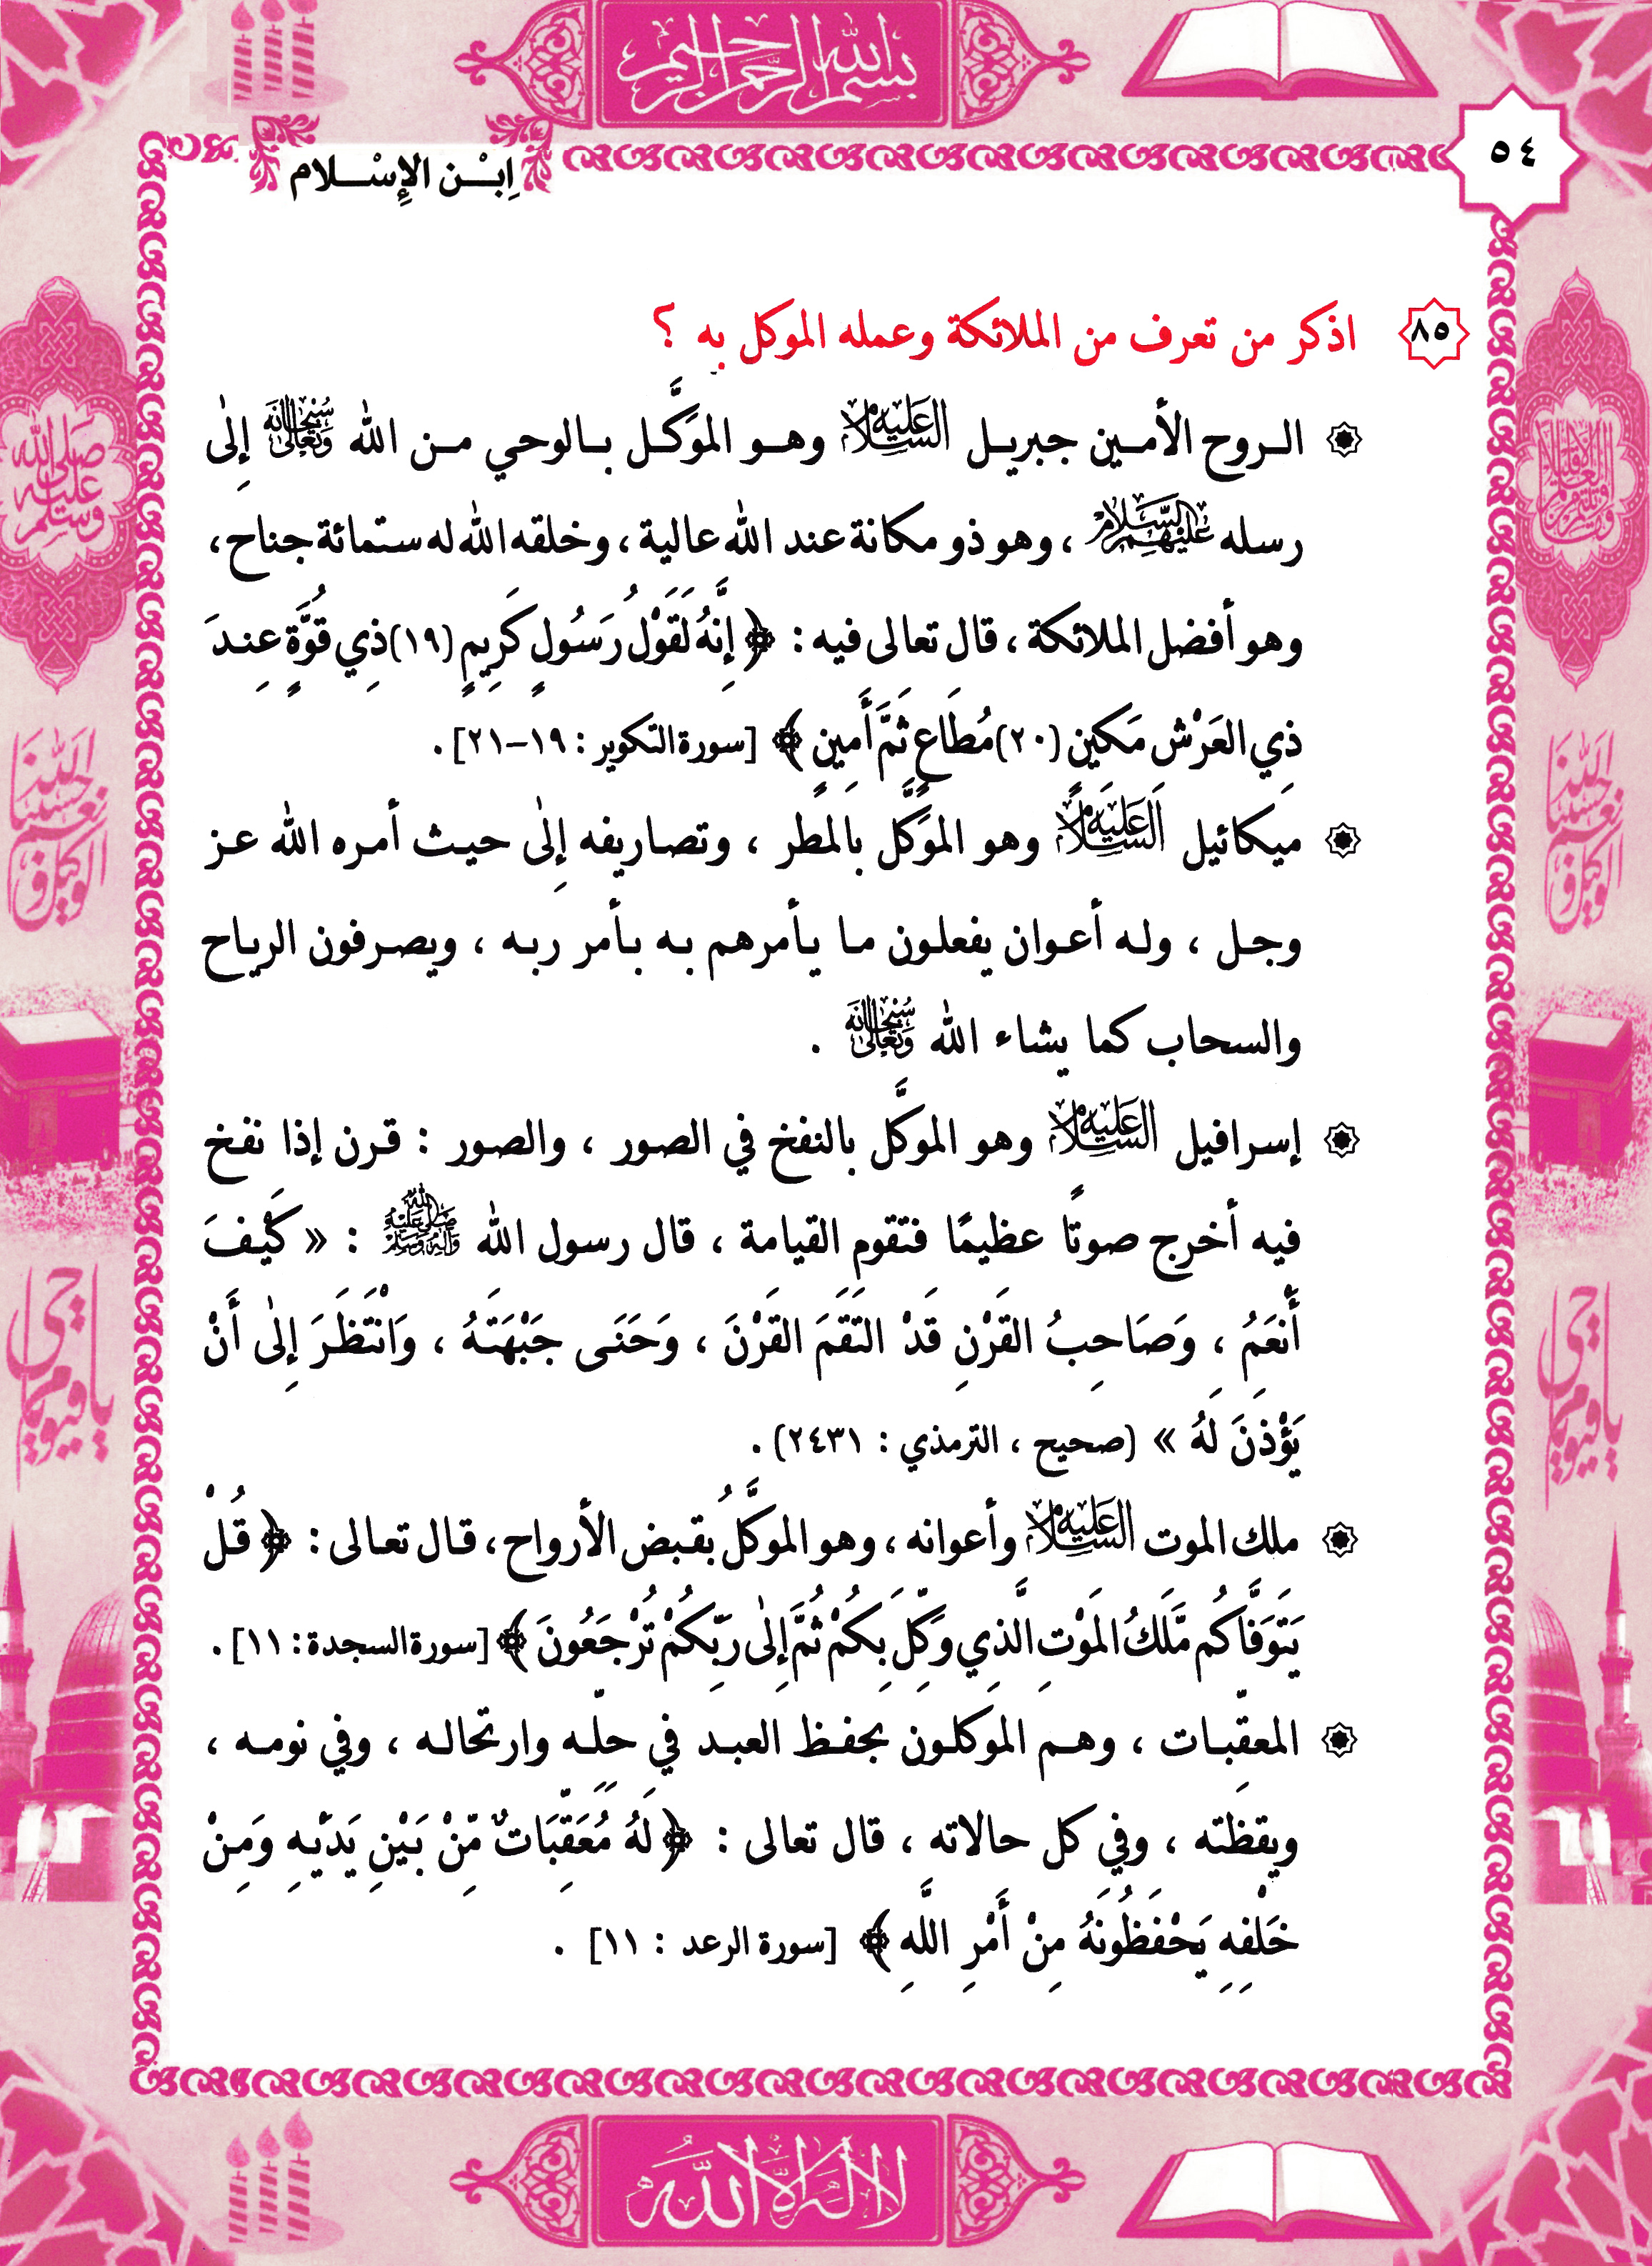 بسم الله الرحمن الرحيم
٥٤
اِبْـــن الإِسْـــلام
٨٥ اذكر من تعرف من الملائكة وعمله الموكل به ؟
الـروح الأمـين جبريـل عليه السلام وهـو الموَكَّـل بـالوحي مـن الله سبحانه وتعالى إِلى
رسله عليهم السلام ، وهو ذو مكانة عند الله عالية ، وخلقه الله له ستمائة جناح ،
وهو أفضل الملائكة ، قال تعالى فيه : ﴿ إِنَّهُ لَقَوْلُ رَسُولٍ كَرِيمٍ (١٩) ذِي قُوَّةٍ عِنـدَ
ذِي العَرْشِ مَكِينٍ (٢٠) مُطَاعٍ ثَمَّ أَمِينٍ ﴾ [سورة التكوير : ١٩–٢١] .
ميكائيل عليه السلام وهو الموَكَّل بالمطر ، وتصاريفه إِلى حيث أمره الله عـز
وجـل ، ولـه أعـوان يفعلـون مـا يـأمرهم بـه بـأمر ربـه ، ويصـرفون الريـاح
والسحاب كما يشاء الله سبحانه وتعالى .
إسرافيل عليه السلام وهو الموكَّل بالنفخ في الصور ، والصور : قـرن إذا نفـخ
فيه أخرج صوتًا عظيمًا فتقوم القيامة ، قال رسول الله صلى الله عليه وآله وسلم : « كَيْـفَ
أَنْعَمُ ، وَصَاحِبُ القَرْنِ قَدْ التَقَمَ القَرْنَ ، وَحَنَـى جَبْهَتَـهُ ، وَانْتَظَرَ إِلى أَنْ
يَؤْذنَ لَهُ » (صحيح ، الترمذي : ٢٤٣١) .
ملك الموت عليه السلام وأعوانه ، وهو الموكَّلُ بقـبض الأرواح ، قـال تعـالى : ﴿ قُـلْ
يَتَوَفَّاكُم مَّلَكُ المَوْتِ الَّذِي وَكِّلَ بِكُمْ ثُمَّ إِلى رَبِّكُمْ تُرْجَعُونَ ﴾ [سورة السجدة : ١١] .
المعقِّبـات ، وهـم الموكلـون بحفـظ العبـد في حلِّـه وارتحالـه ، وفي نومـه ،
ويقظته ، وفي كل حالاته ، قال تعالى : ﴿ لَهُ مُعَقِّبَاتٌ مِّنْ بَيْنِ يَدَيْـهِ وَمِـنْ
خَلْفِهِ يَحْفَظُونَهُ مِنْ أَمْرِ اللَّهِ ﴾ [سورة الرعد : ١١] .
صلى الله عليه وسلم
حسبنا الله ونعم الوكيل
يا حي يا قيوم
لا إله إلا الله